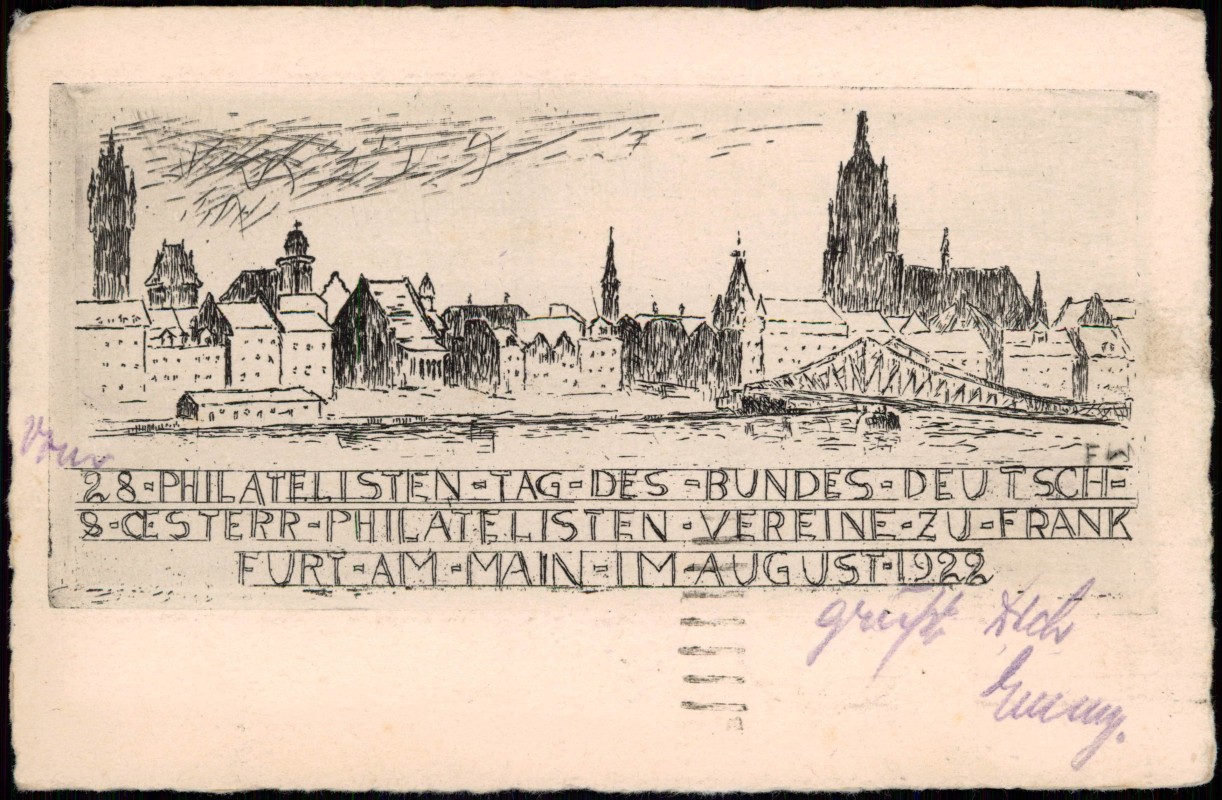 Vom
FW
28-PHILATELISTEN-TAG-DES-BUNDES-DEUTSCH-
&-ŒSTERR-PHILATELISTEN-VEREINE-ZU-FRANK
FURT-AM-MAIN-IM-AUGUST-1922
grüßt Dich